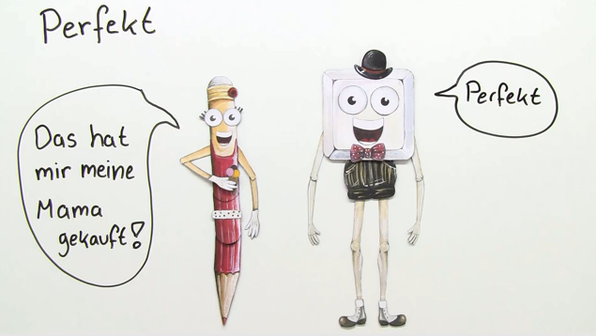 Perfekt
Das hat
mir meine
Mama
gekauft!
Perfekt